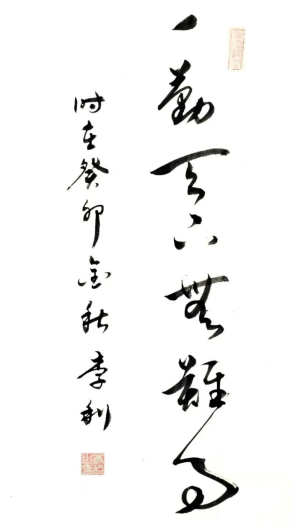 一勤天下無難事
时在癸卯金秋李利